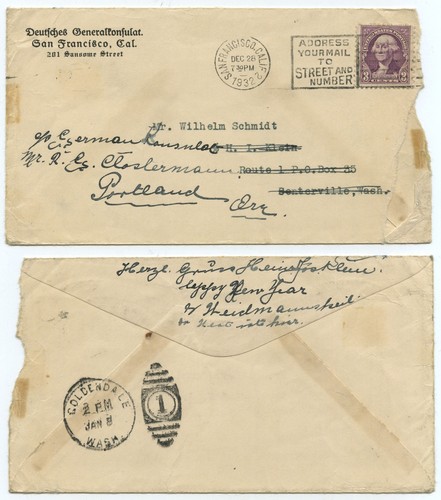 Deutsches Generalkonsulat.
San Francisco, Cal.
281 Sansome Street
SAN FRANCISCO, CALIF. 2
DEC 28
7 PM
1932
ADDRESS
YOUR MAIL
TO
STREET AND
NUMBER
3 3
Mr. Wilhelm Schmidt
c/o German Konsulat H. I. Klein
Mr. R. Clostermann Route 1 P.O.Box 25
Centerville, Wash.
Portland Org
Herzl. Gruss
Happy New Year
Weidmannsheil
GOLDENDALE
2 PM
JAN 8
WASH.
1